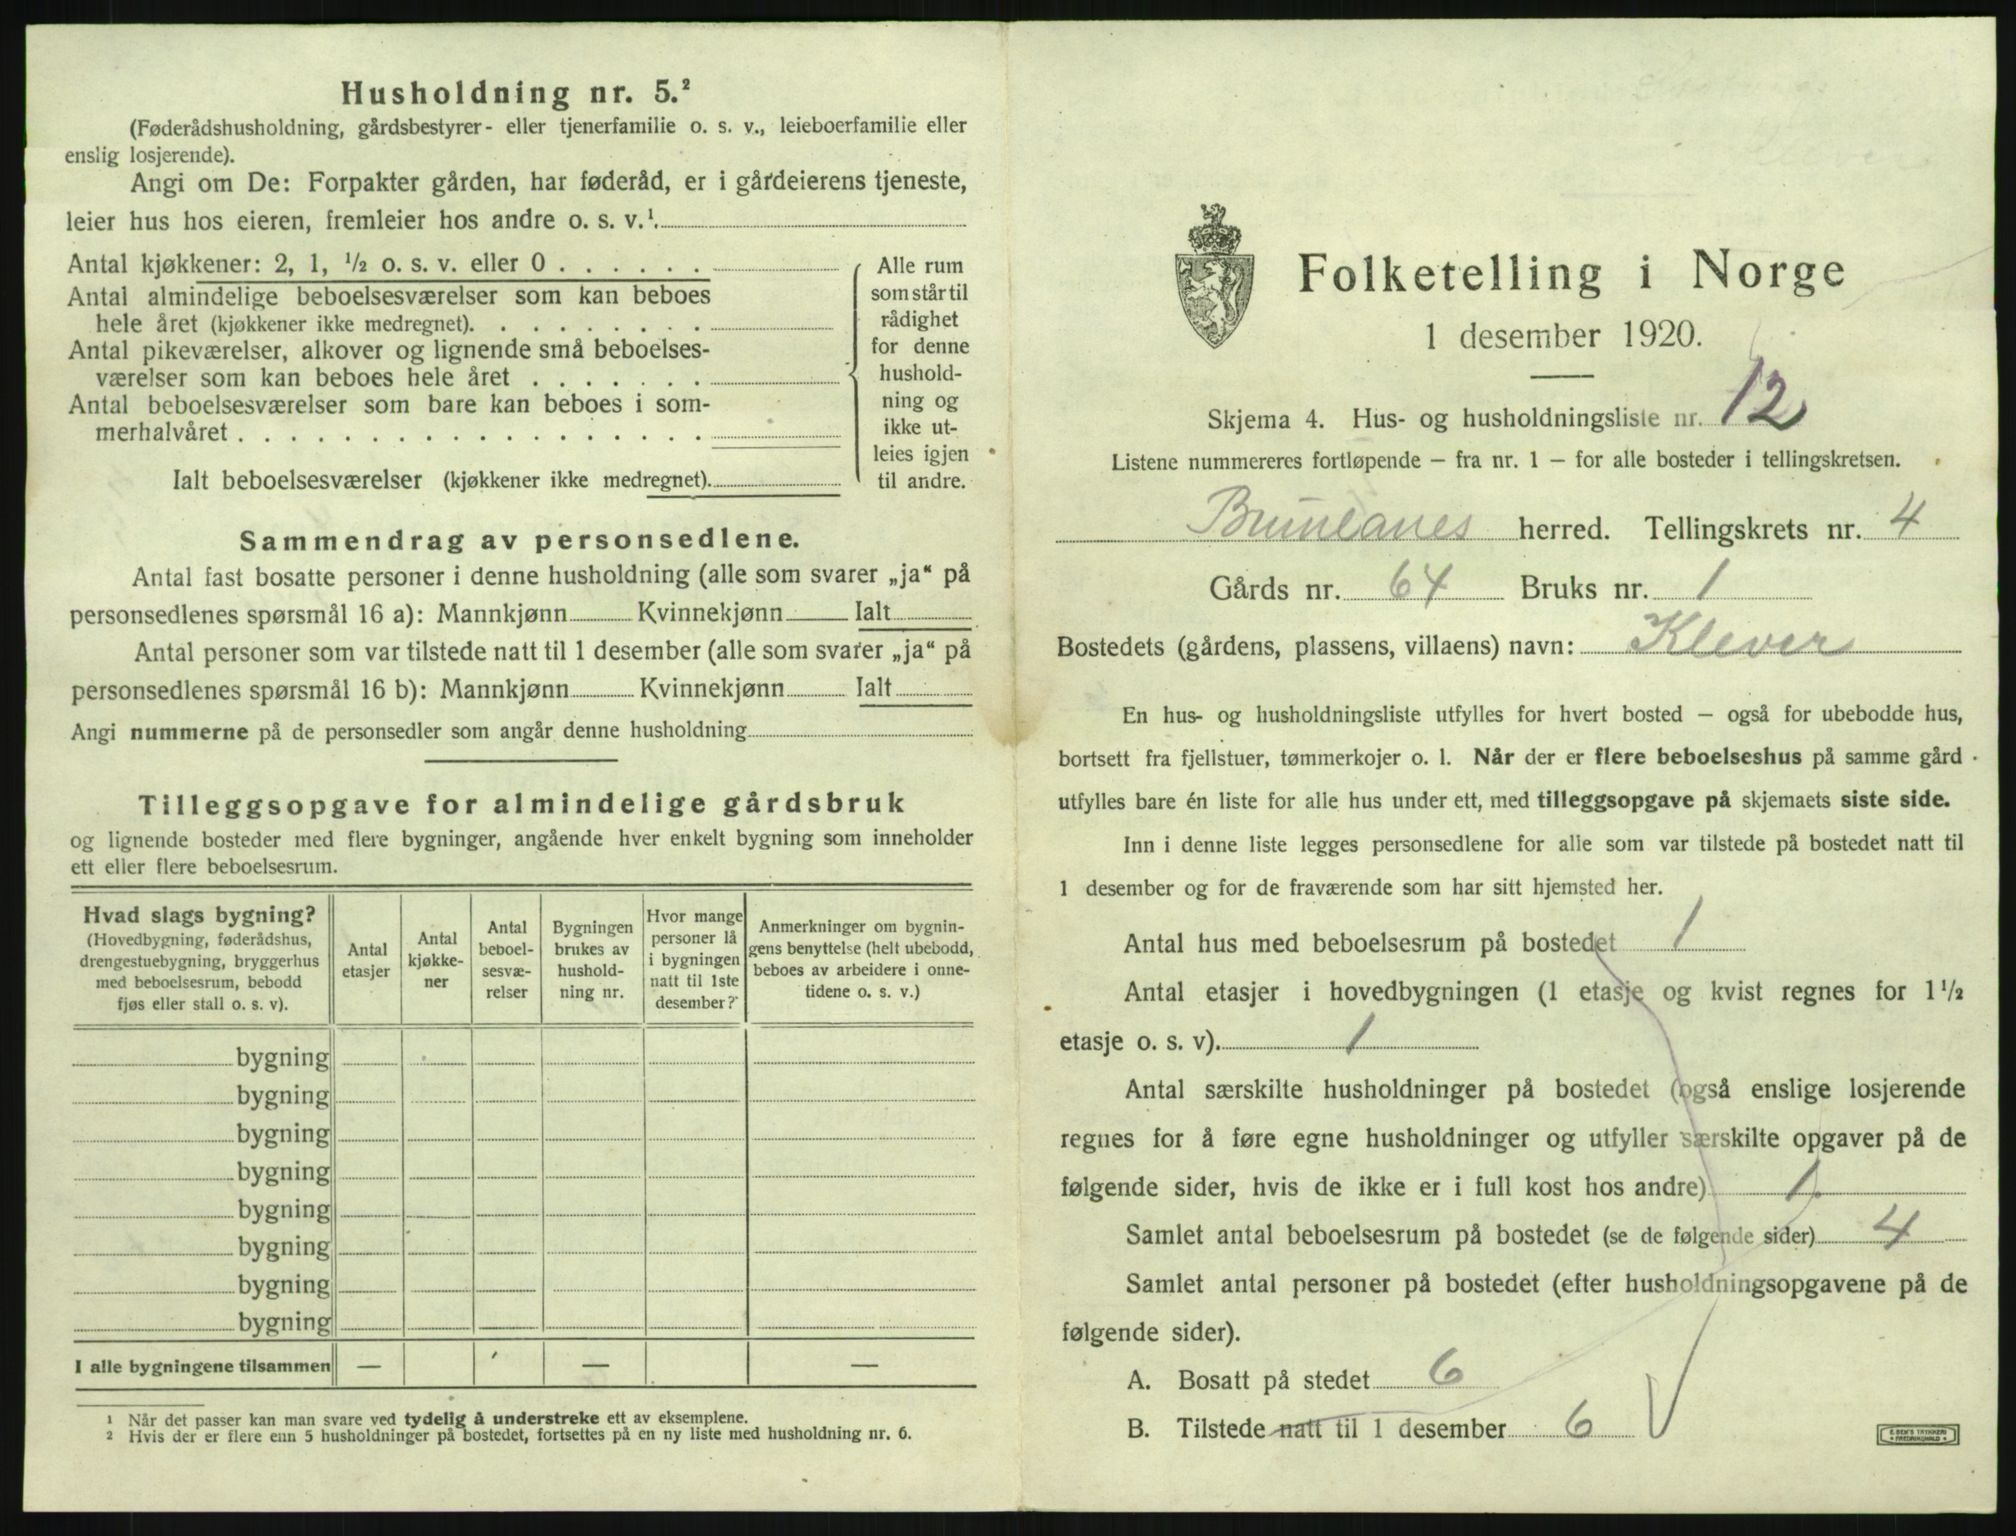 Husholdning nr. 5.²
(Føderådshusholdning, gårdsbestyrer- eller tjenerfamilie o. s. v., leieboerfamilie eller
enslig losjerende).
Angi om De: Forpakter gården, har føderåd, er i gårdeierens tjeneste,
leier hus hos eieren, fremleier hos andre o. s. v.¹.
Antal kjøkkener: 2, 1, ½ o. s. v. eller 0 . . . . . .
Antal almindelige beboelsesværelser som kan beboes
hele året (kjøkkener ikke medregnet). . . . . . . . .
Antal pikeværelser, alkover og lignende små beboelses-
værelser som kan beboes hele året . . . . . . .
Antal beboelsesværelser som bare kan beboes i som-
merhalvåret . . . . . . . . . . . . . . . . . .
Ialt beboelsesværelser (kjøkkener ikke medregnet).
Alle rum
som står til
rådighet
for denne
hushold-
ning og
ikke ut-
leies igjen
til andre.
Sammendrag av personsedlene.
Antal fast bosatte personer i denne husholdning (alle som svarer „ja“ på
personsedlenes spørsmål 16 a): Mannkjønn Kvinnekjønn Ialt
Antal personer som var tilstede natt til 1 desember (alle som svarer „ja“ på
personsedlenes spørsmål 16 b): Mannkjønn Kvinnekjønn Ialt
Angi nummerne på de personsedler som angår denne husholdning
Tilleggsopgave for almindelige gårdsbruk
og lignende bosteder med flere bygninger, angående hver enkelt bygning som inneholder
ett eller flere beboelsesrum.
Hvad slags bygning?
(Hovedbygning, føderådshus,
drengestuebygning, bryggerhus
med beboelsesrum, bebodd
fjøs eller stall o. s. v).
Antal
etasjer
Antal
kjøkke-
ner
Antal
beboel-
sesvæ-
relser
Bygningen
brukes av
hushold-
ning nr.
Hvor mange
personer lå
i bygningen
natt til 1ste
desember?
Anmerkninger om bygnin-
gens benyttelse (helt ubebodd,
beboes av arbeidere i onne-
tidene o. s. v.)
bygning
bygning
bygning
bygning
bygning
bygning
bygning
bygning
I alle bygningene tilsammen — — —
¹ Når det passer kan man svare ved tydelig å understreke ett av eksemplene.
² Hvis der er flere enn 5 husholdninger på bostedet, fortsettes på en ny liste med husholdning nr. 6.
Folketelling i Norge
1 desember 1920.
Skjema 4. Hus- og husholdningsliste nr. 12
Listene nummereres fortløpende — fra nr. 1 — for alle bosteder i tellingskretsen.
Brunlanes herred. Tellingskrets nr. 4
Gårds nr. 64 Bruks nr. 1
Bostedets (gårdens, plassens, villaens) navn: Klever
En hus- og husholdningsliste utfylles for hvert bosted — også for ubebodde hus,
bortsett fra fjellstuer, tømmerkojer o. l. Når der er flere beboelseshus på samme gård
utfylles bare én liste for alle hus under ett, med tilleggsopgave på skjemaets siste side.
Inn i denne liste legges personsedlene for alle som var tilstede på bostedet natt til
1 desember og for de fraværende som har sitt hjemsted her.
Antal hus med beboelsesrum på bostedet 1
Antal etasjer i hovedbygningen (1 etasje og kvist regnes for 1½
etasje o. s. v). 1
Antal særskilte husholdninger på bostedet (også enslige losjerende
regnes for å føre egne husholdninger og utfyller særskilte opgaver på de
følgende sider, hvis de ikke er i full kost hos andre) 1
Samlet antal beboelsesrum på bostedet (se de følgende sider) 4
Samlet antal personer på bostedet (efter husholdningsopgavene på de
følgende sider).
A. Bosatt på stedet 6
B. Tilstede natt til 1 desember 6